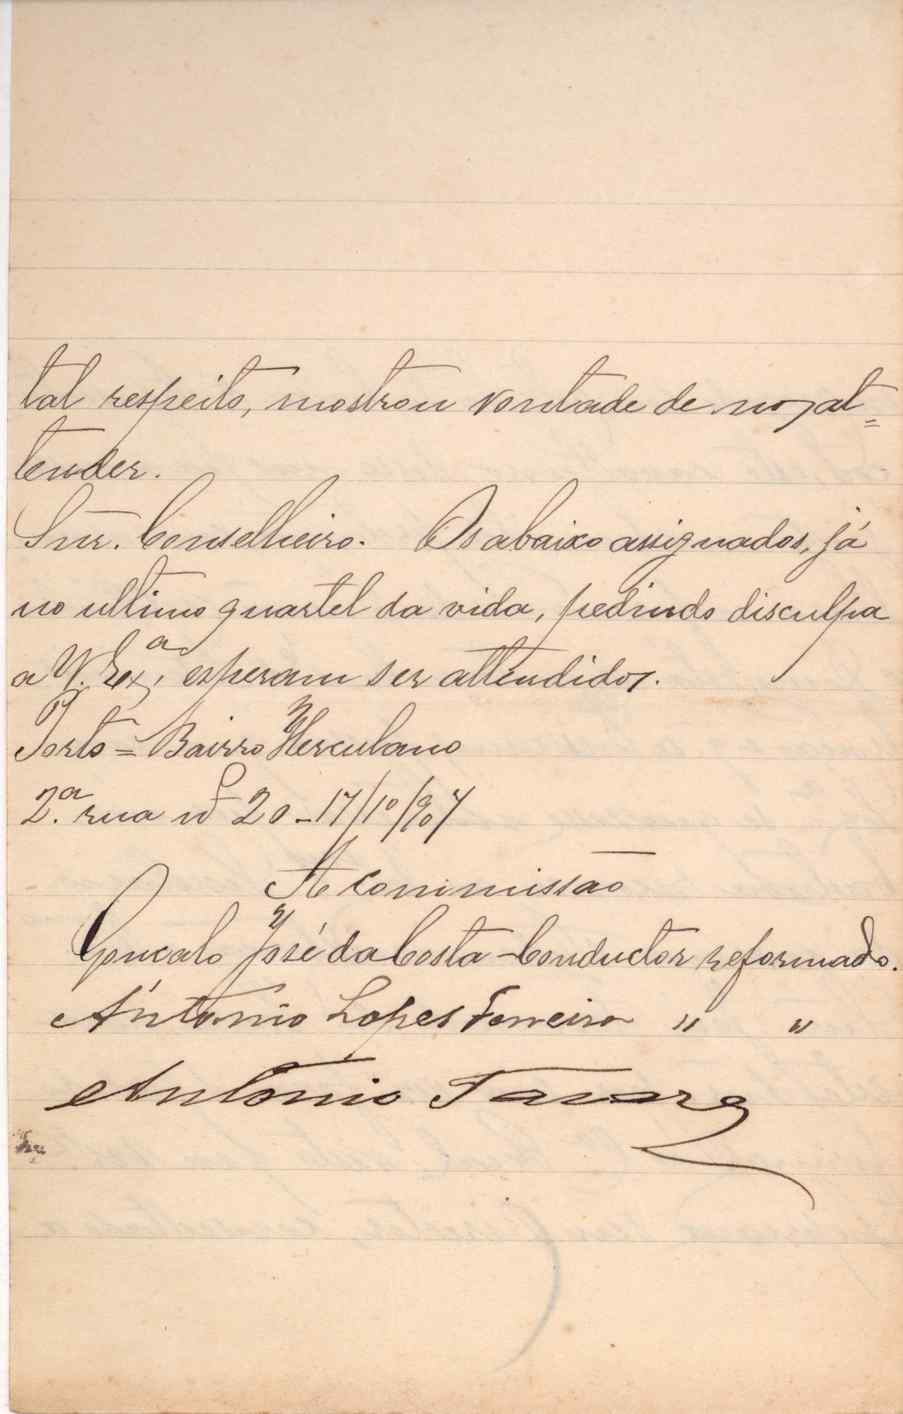 tal respeito, mostrou vontade de nos at=
tender.
Snr. Conselheiro. Os abaixo assignados, já
no ultimo quartel da vida, pedindo disculpa
a V. Exª, esperam ser attendidos.
Porto = Bairro Herculano
2.ª rua nº 20 - 17/10/907
A commissão
Gonçalo José da Costa - Conductor reformado.
António Lopes Ferreira " "
António Tavares